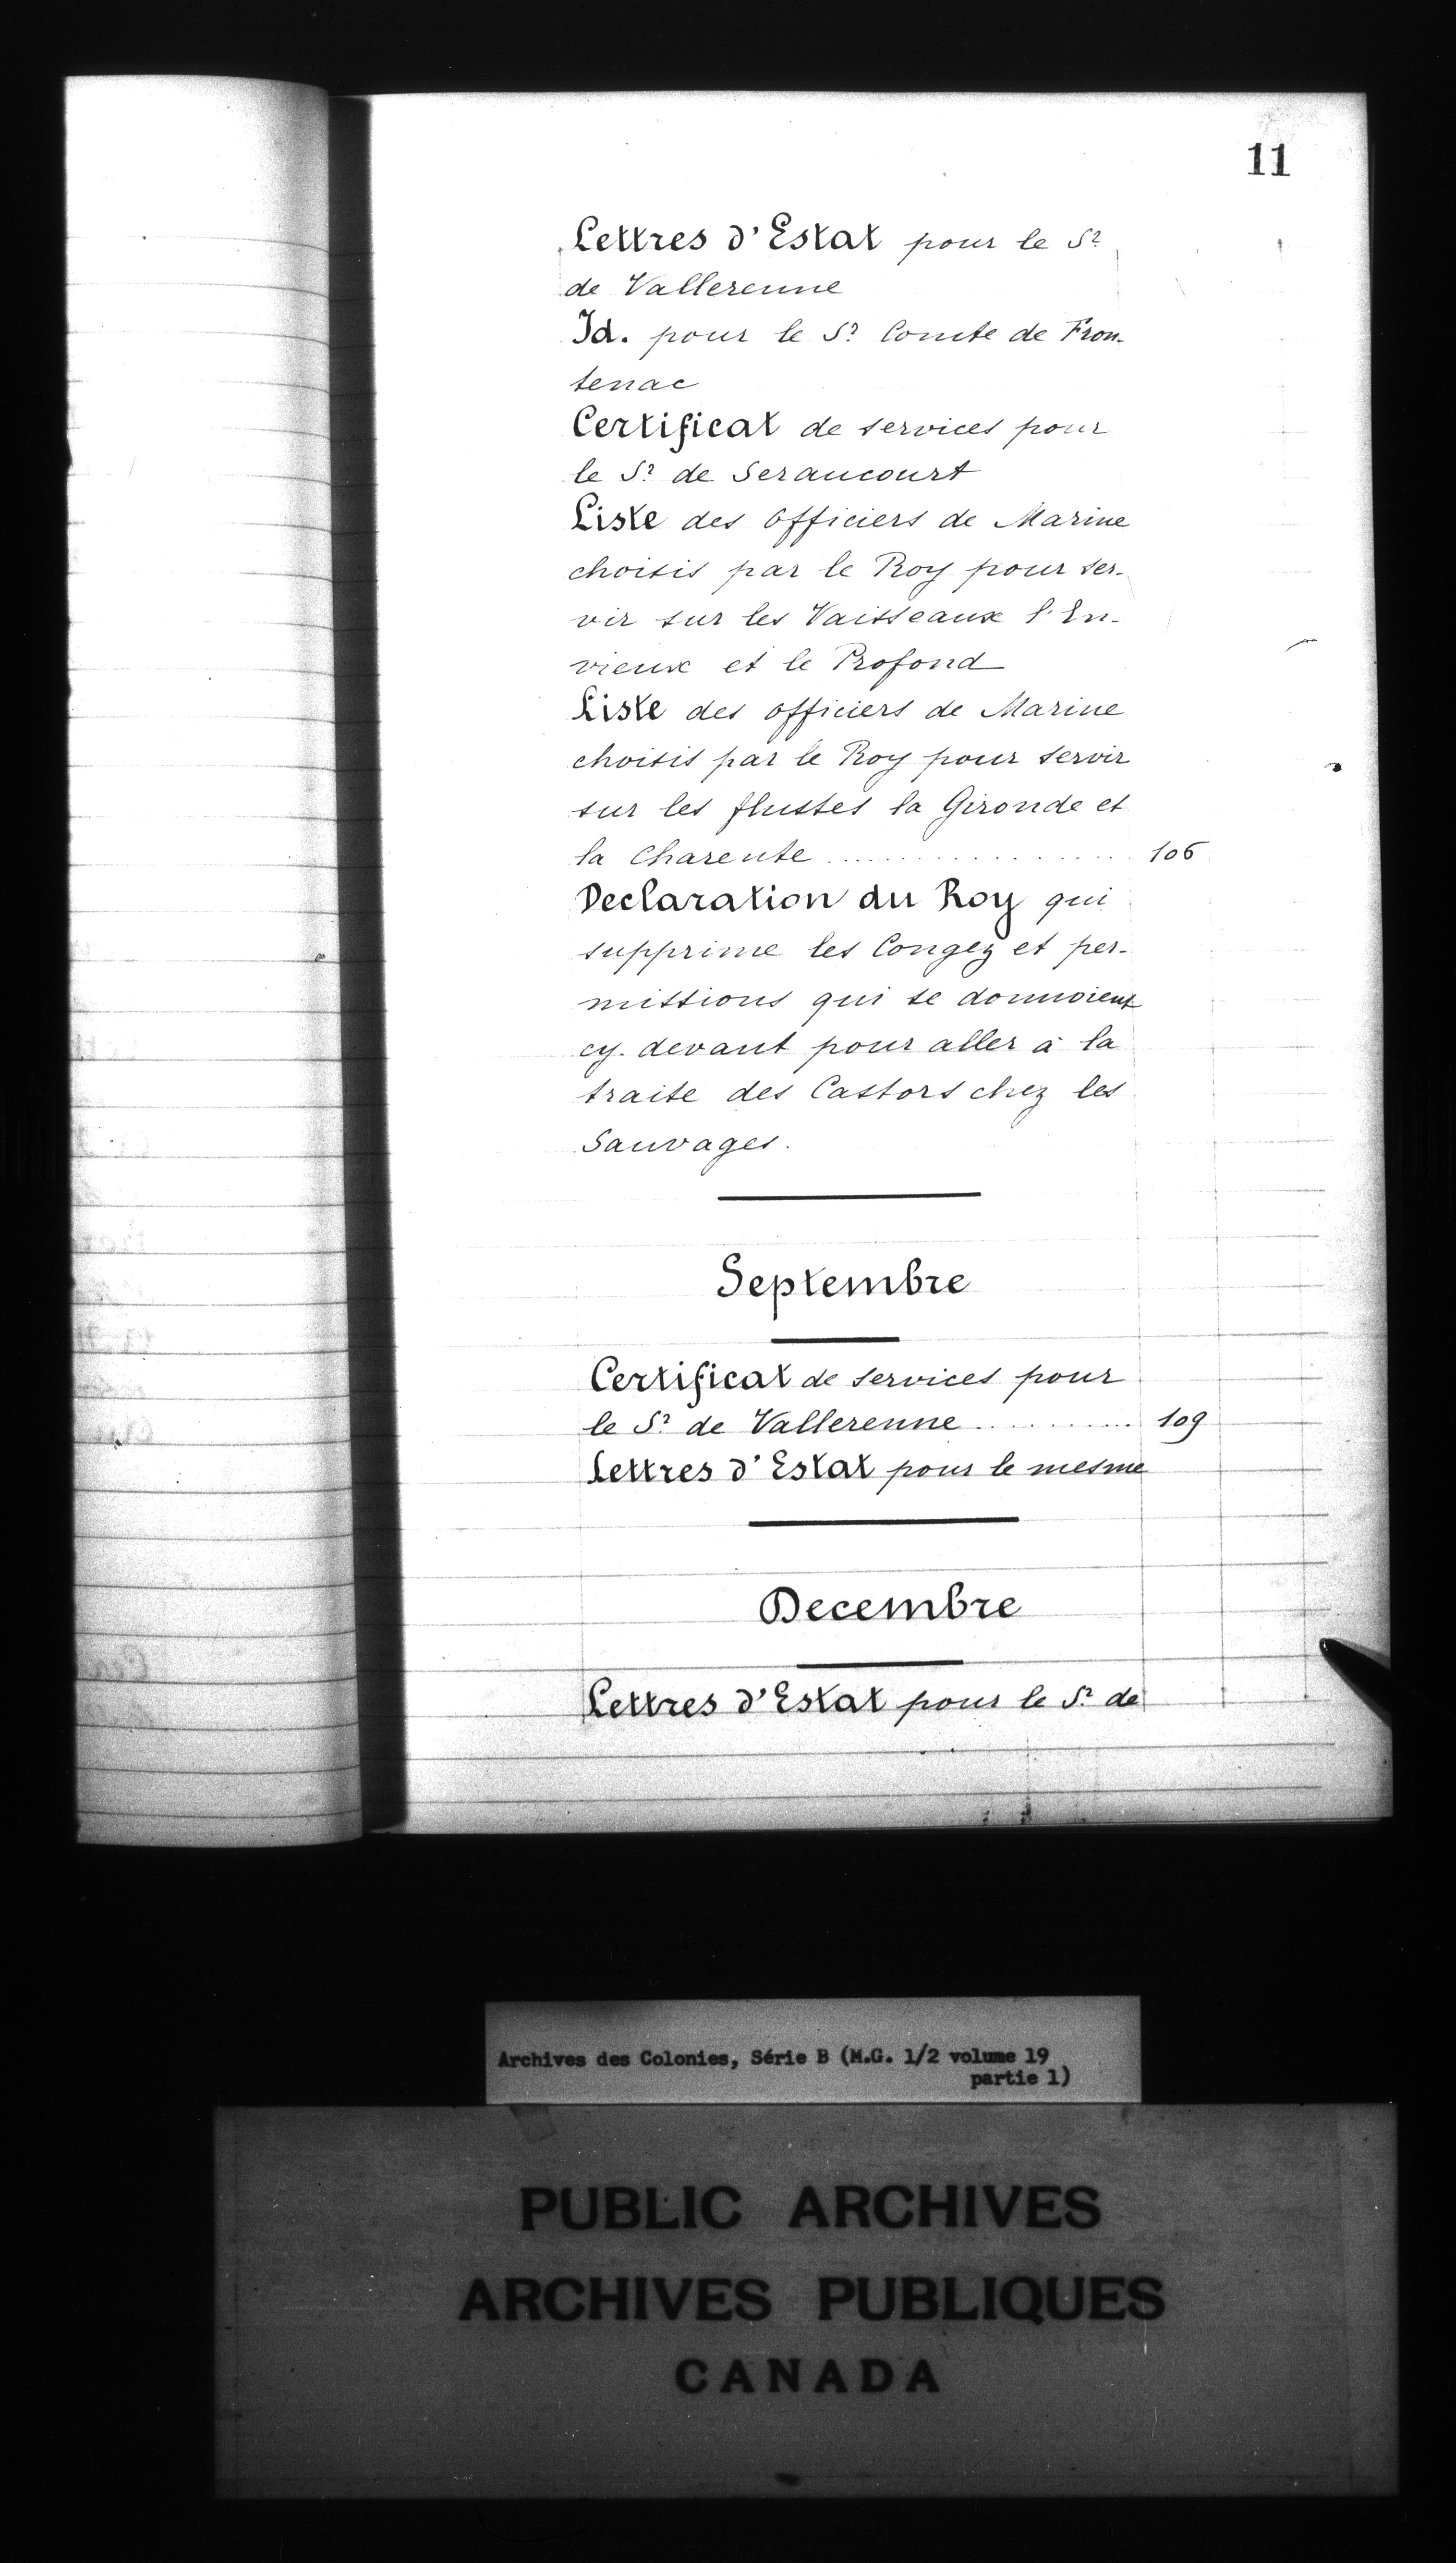 11
Lettres d'Estat pour le Sr
de Vallerenne
Id. pour le Sr Comte de Fron-
tenac
Certificat de services pour
le Sr de Serancourt
Liste des officiers de Marine
choisis par le Roy pour ser-
vir sur les Vaisseaux l'En-
vieux et le Profond
Liste des officiers de Marine
choisis par le Roy pour servir
sur les flustes la Gironde et
la Charente .................. 106
Declaration du Roy qui
supprime les Congez et per-
missions qui se donnoient
cy-devant pour aller à la
traite des Castors chez les
Sauvages.
Septembre
Certificat de services pour
le Sr de Vallerenne ........... 109
Lettres d'Estat pour le mesme
Decembre
Lettres d'Estat pour le Sr de
Archives des Colonies, Série B (M.G. 1/2 volume 19
partie 1)
PUBLIC ARCHIVES
ARCHIVES PUBLIQUES
CANADA